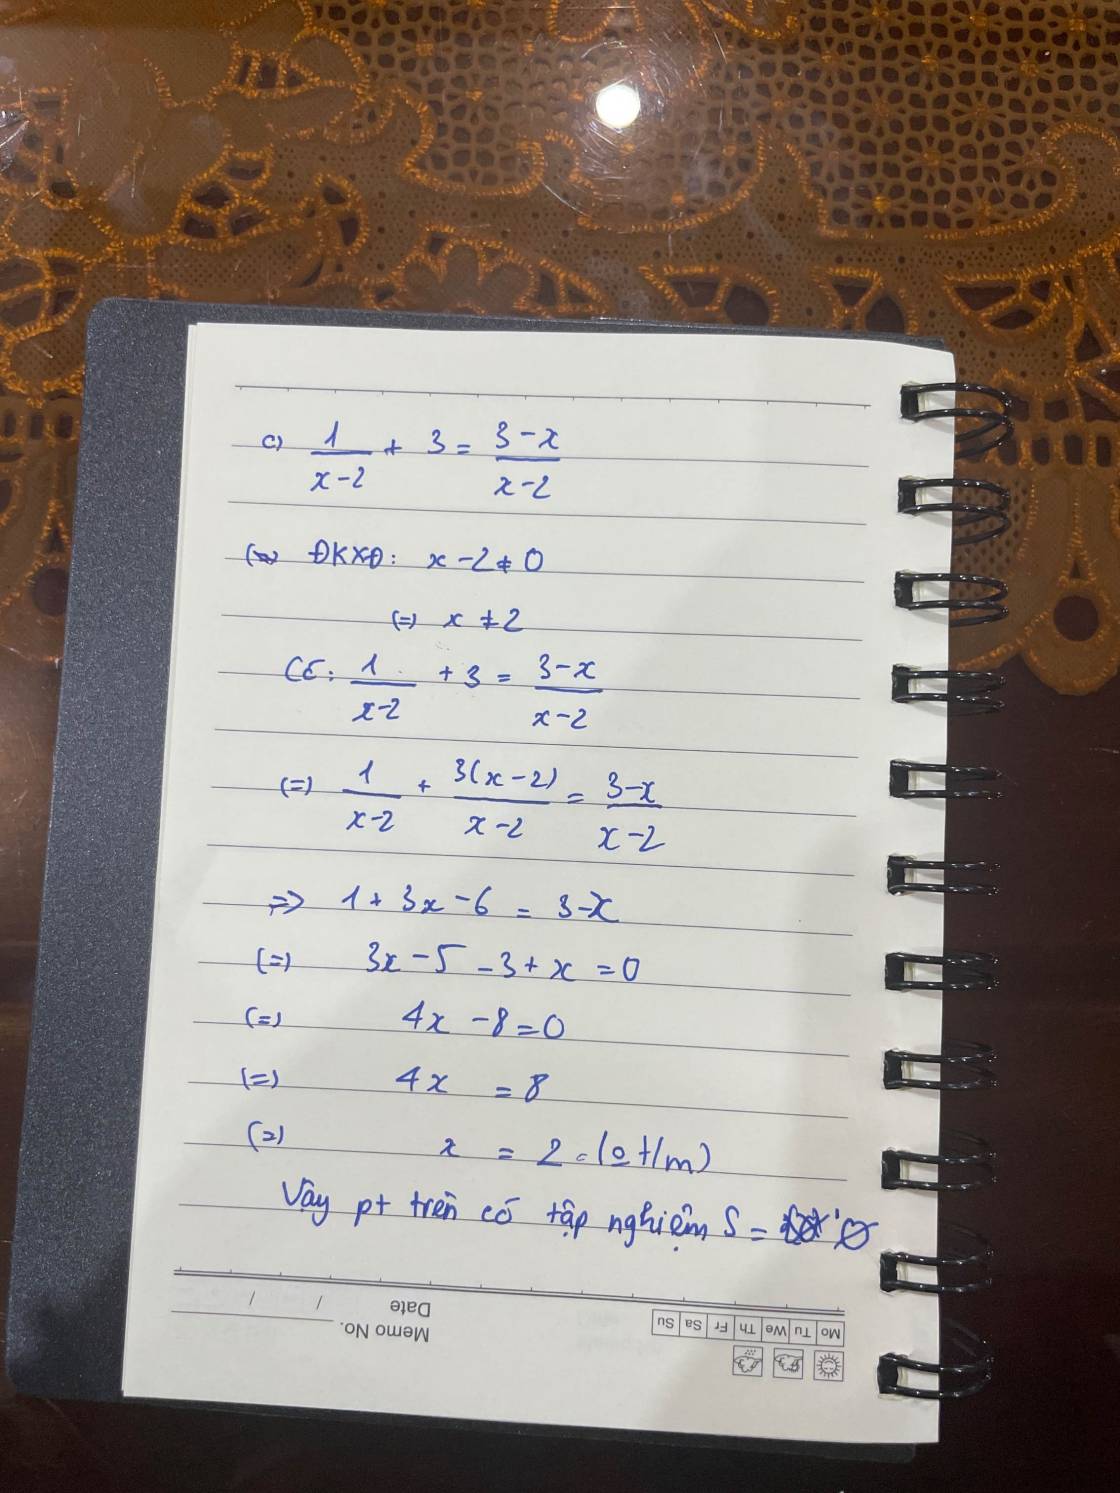 c) 1/(x-2) + 3 = (3-x)/(x-2)
ĐKXĐ: x-2≠0
(=) x ≠ 2
CÓ: 1/(x-2) + 3 = (3-x)/(x-2)
(=) 1/(x-2) + 3(x-2)/(x-2) = (3-x)/(x-2)
=> 1+3x-6 = 3-x
(=) 3x-5-3+x=0
(=) 4x-8=0
(=) 4x = 8
(=) x = 2 (o t/m)
Vậy pt trên có tập nghiệm S = Ø
Memo No.
Date / /
Mo Tu We Th Fr Sa Su